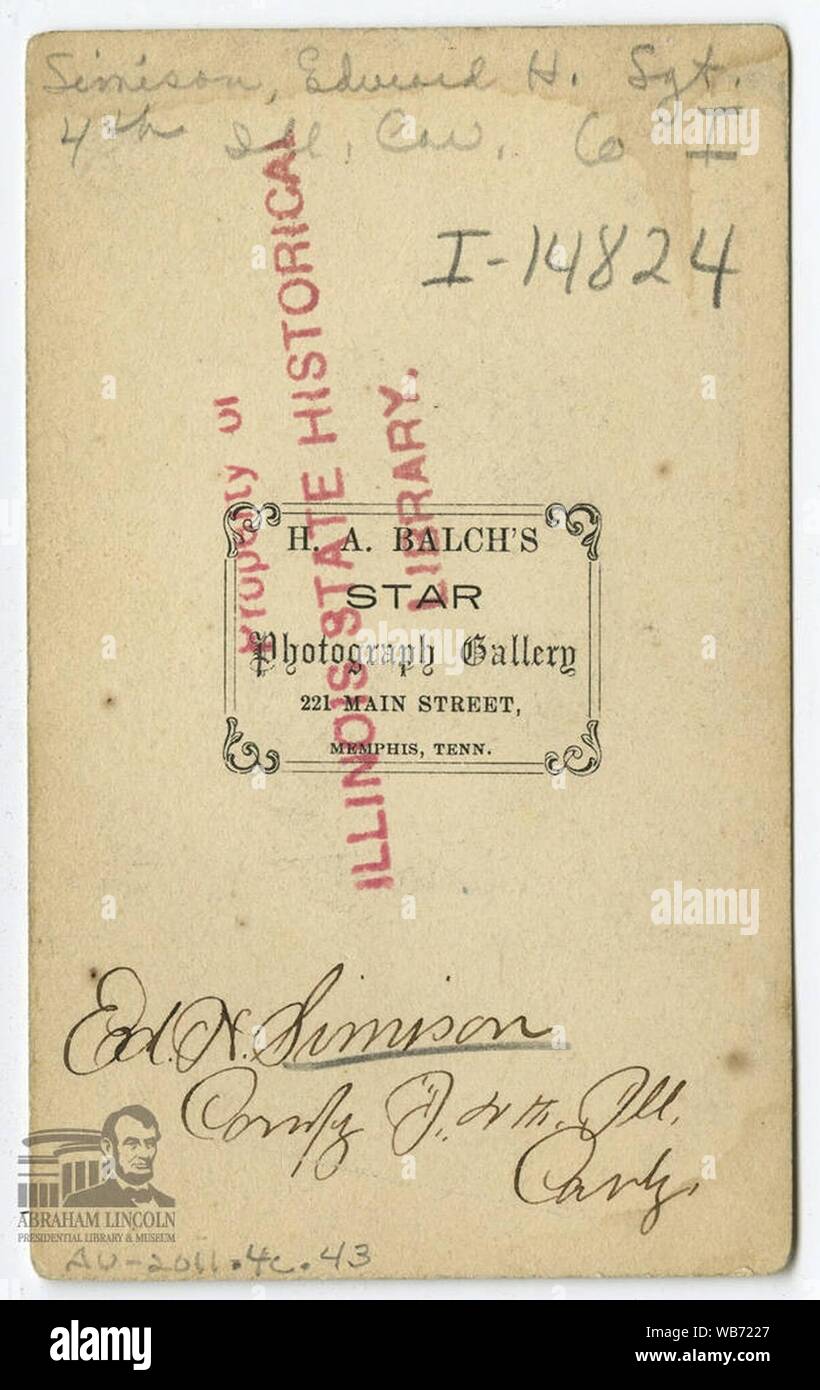 Simison, Edward H. Sgt.
4th Ill, Cav. Co I
I-14824
Property of
ILLINOIS STATE HISTORICAL
LIBRARY.
H. A. BALCH'S
STAR
Photograph Gallery
221 MAIN STREET,
MEMPHIS, TENN.
Ed. H. Simison
Compy I, 4th. Ill.
Cavly.
ABRAHAM LINCOLN
PRESIDENTIAL LIBRARY & MUSEUM
AV-2011.4c.43
alamy
alamy
alamy
alamy
a alamy stock photo
WB7227
www.alamy.com